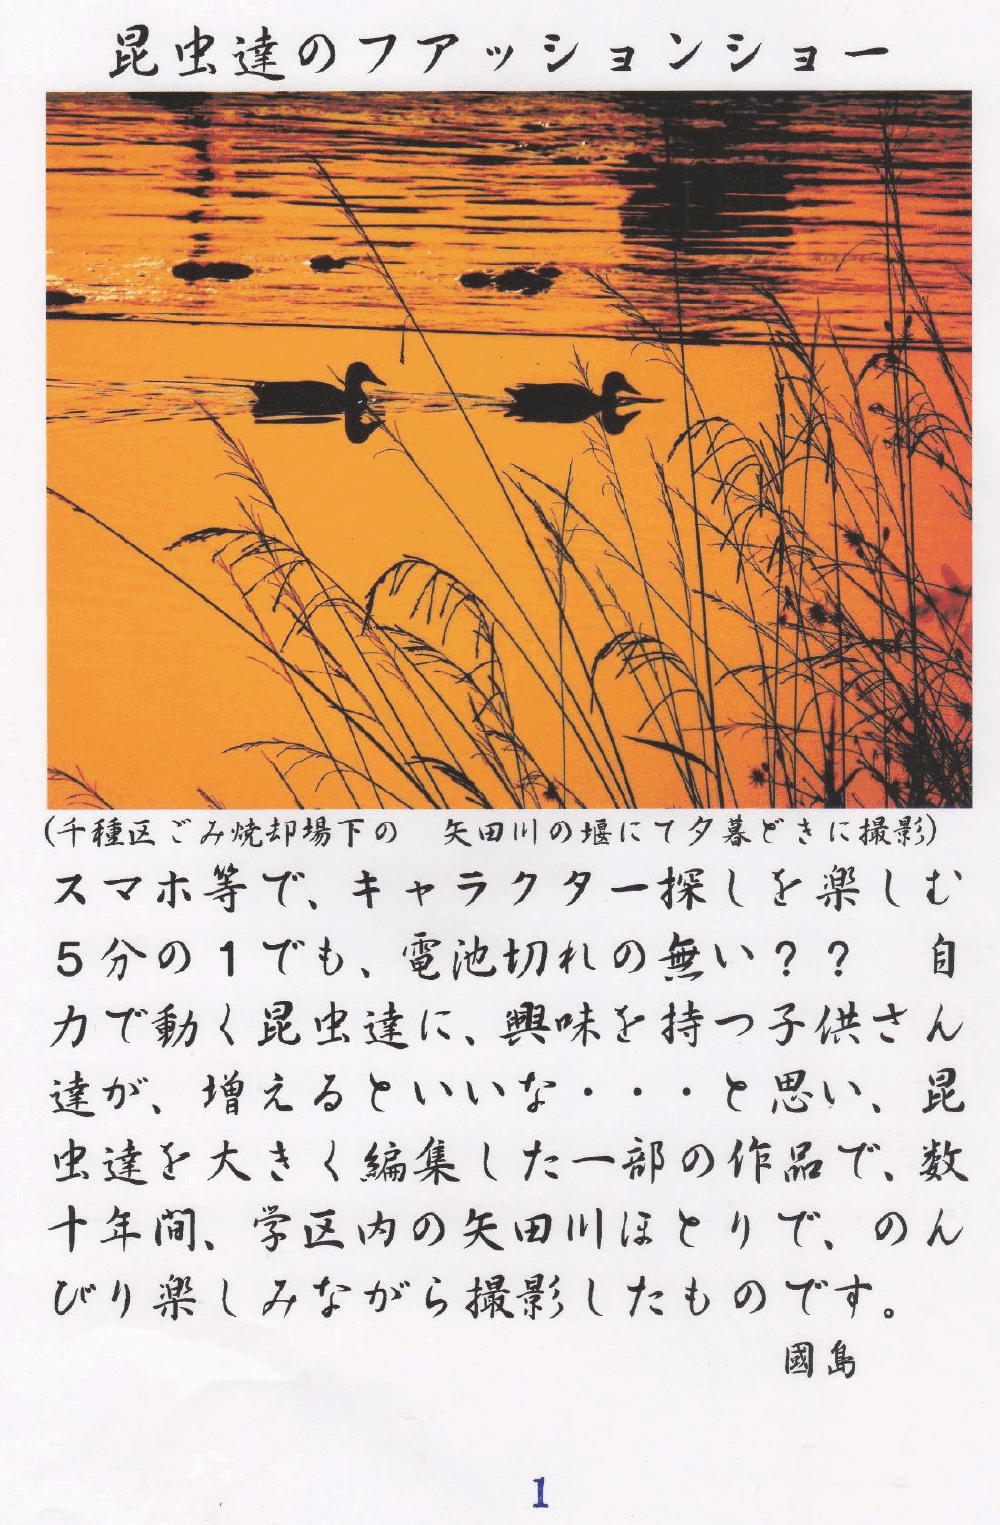 昆虫達のファッションショー
(千種区ごみ焼却場下の　矢田川の堰にて夕暮どきに撮影)
スマホ等で、キャラクター探しを楽しむ
5分の1でも、電池切れの無い??　自
力で動く昆虫達に、興味を持つ子供さん
達が、増えるといいな・・・と思い、昆
虫達を大きく編集した一部の作品で、数
十年間、学区内の矢田川ほとりで、のん
びり楽しみながら撮影したものです。
國島
1